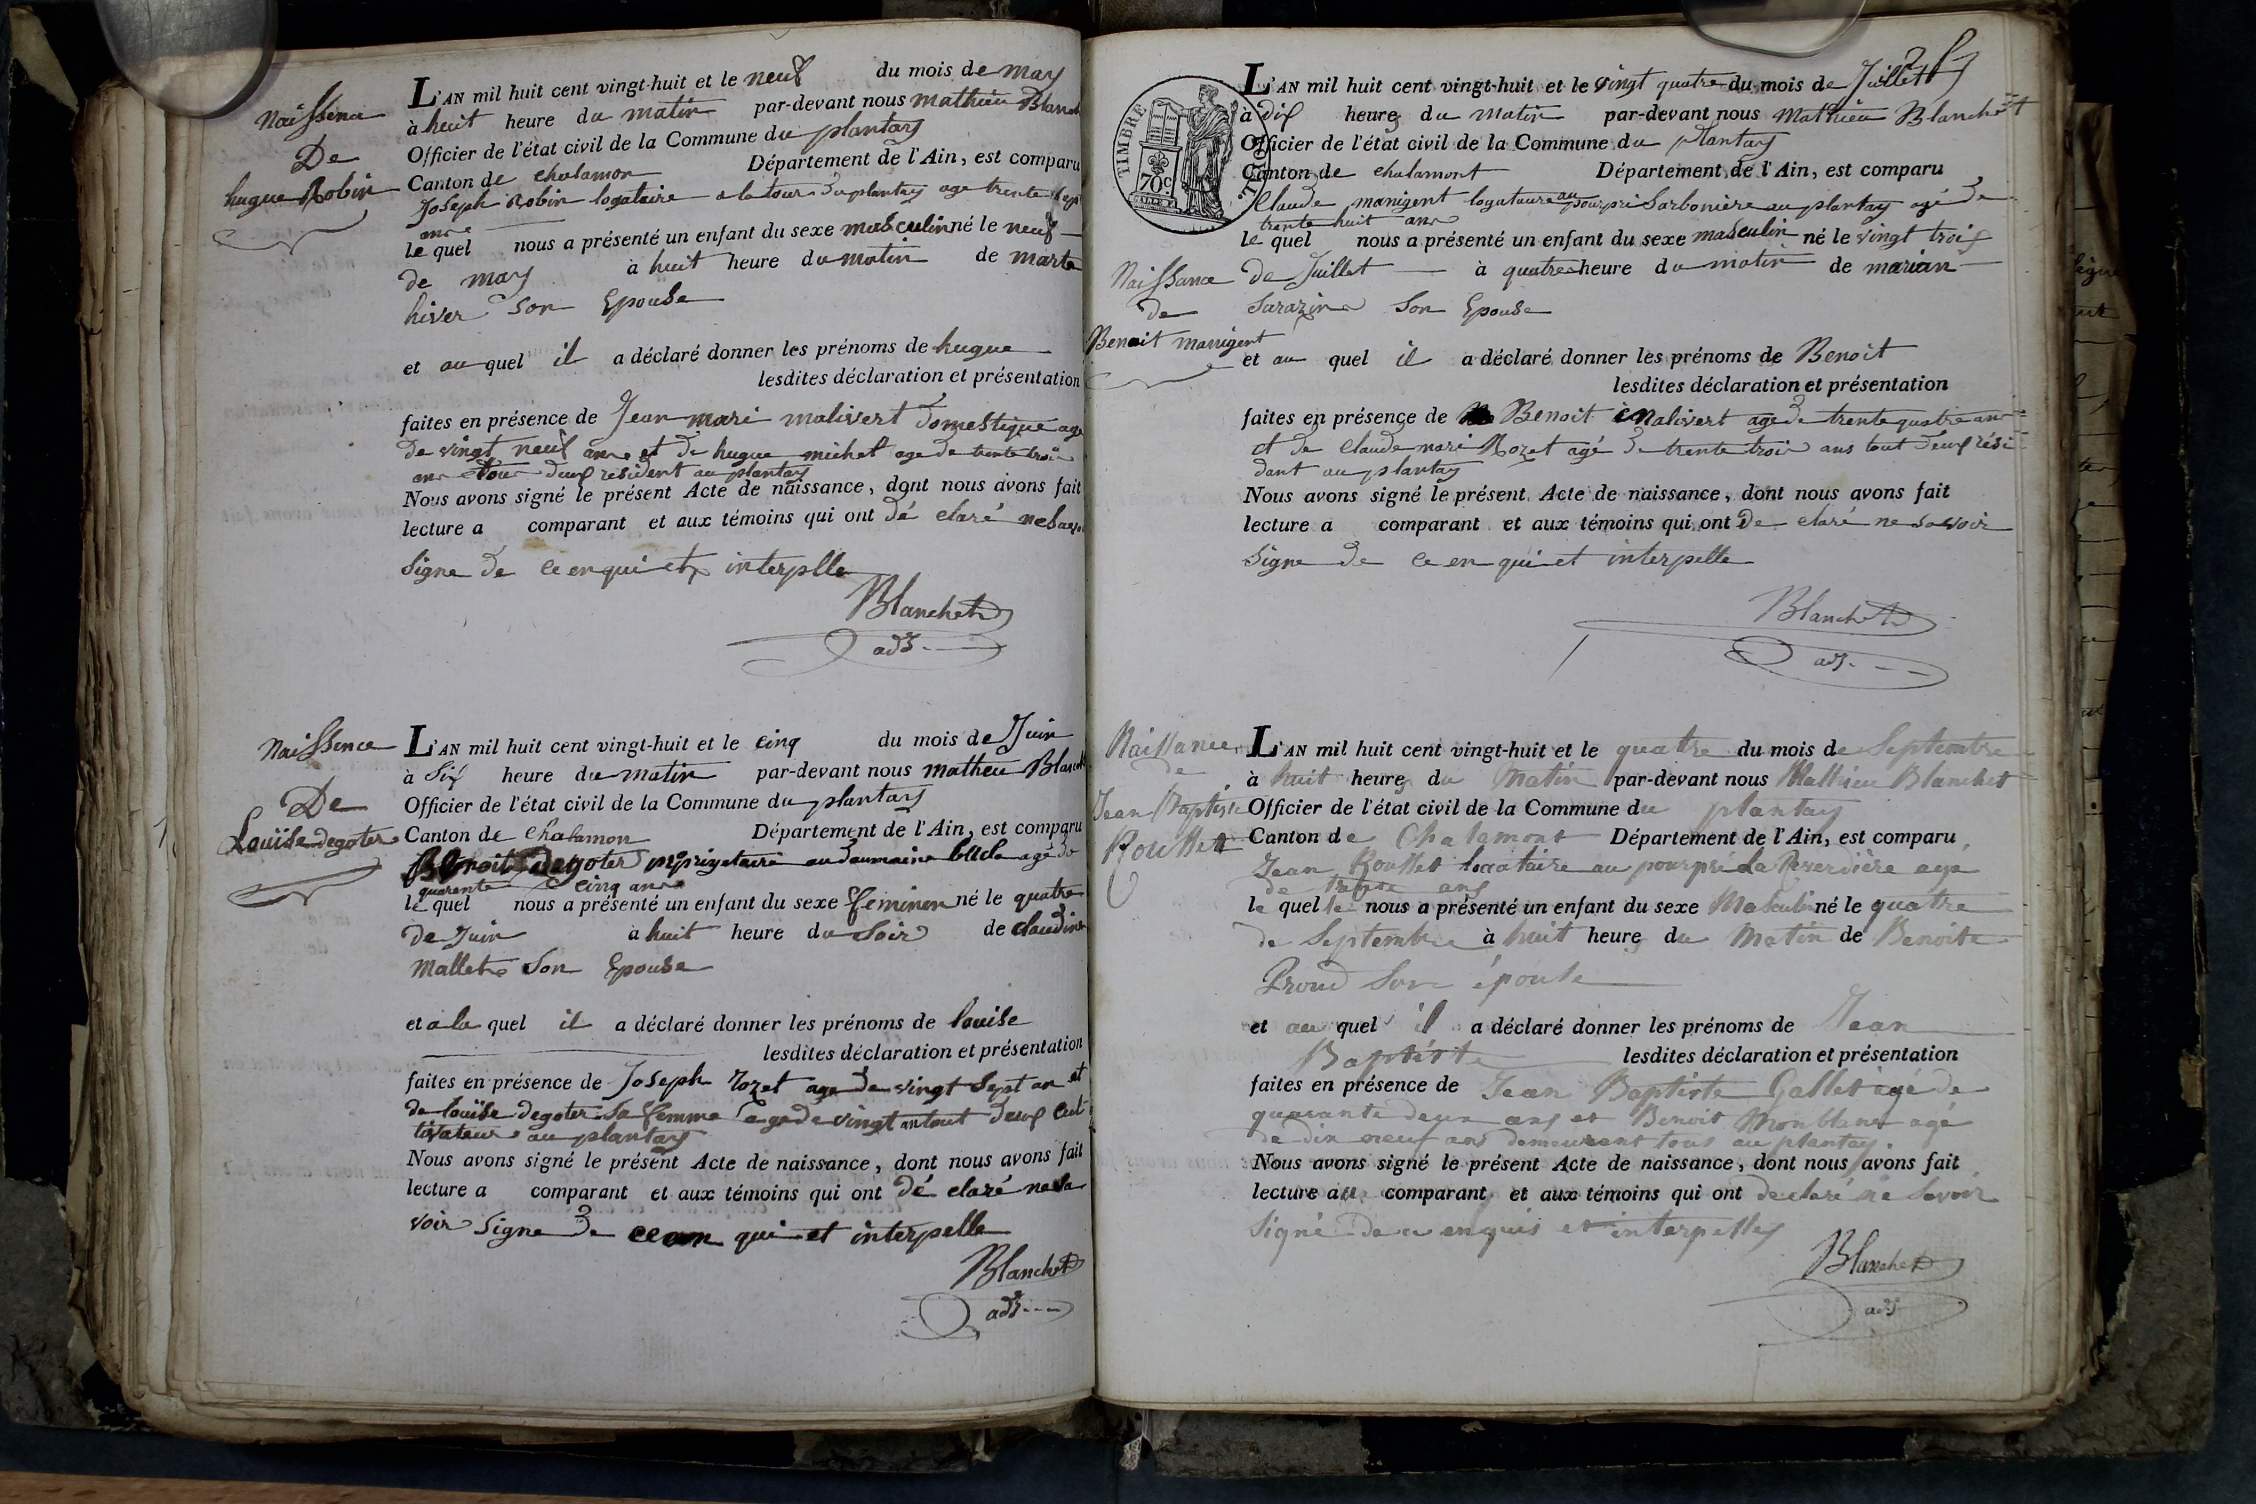 Naissence
De
hugue Robin
L'AN mil huit cent vingt-huit et le neuf du mois de may
à huit heure du matin par-devant nous mathieu Blanch
Officier de l'état civil de la Commune du plantay
Canton de chalamon Département de l'Ain, est comparu
Joseph Robin logataire a la tour du plantay age trente sept
ans
le quel nous a présenté un enfant du sexe masculin né le neuf
de may à huit heure du matin de marte
hiver son Epouse
et au quel il a déclaré donner les prénoms de hugue
lesdites déclaration et présentation
faites en présence de Jean mari malivert domestique age
de vingt neuf ans et de hugue michel age de trente trois
ans tous deux resident au plantay
Nous avons signé le présent Acte de naissance, dont nous avons fait
lecture a comparant et aux témoins qui ont dé claré ne
signe de ce en qui et interplle
Blanchet
adj.
Naissence
De
Louïse degoter
L'AN mil huit cent vingt-huit et le cinq du mois de Juin
à six heure du matin par-devant nous matheu Blanch
Officier de l'état civil de la Commune du plantay
Canton de chalamon Département de l'Ain, est comparu
Benoit Degoter au agé de
quarente cinq ans
le quel nous a présenté un enfant du sexe feminen né le quatre
de Juin à huit heure du soir de claudine
mallet son Epouse
et a la quel il a déclaré donner les prénoms de louise
lesdites déclaration et présentation
faites en présence de Joseph rozet age de vingt sept an et
de louïse degoter sa femme age de vingt an tout deux cul
tivateur au plantay
Nous avons signé le présent Acte de naissance, dont nous avons fait
lecture a comparant et aux témoins qui ont dé claré ne sa
voir signe de ce en qui et interpelle
Blanchet
adj.
TIMBRE
ROYAL
70c.
L'AN mil huit cent vingt-huit et le vingt quatre du mois de Juillet
à dix heures du matin par-devant nous Mathieu Blanchet
Officier de l'état civil de la Commune du plantay
Canton de chalamont Département de l'Ain, est comparu
Claude manigent logataire au pourpri Sarbonière au plantay agé de
trente huit ans
le quel nous a présenté un enfant du sexe masculin né le vingt trois
Naissance
de
Benoit manigent
de Juillet à quatre heure du matin de marian
Sarazin Son Epouse
et au quel il a déclaré donner les prénoms de Benoit
lesdites déclaration et présentation
faites en présence de Benoit malivert age de trente quatre ans
et de Claude mari Rozet agé de trente trois ans tout deux rési
dant au plantay
Nous avons signé le présent Acte de naissance, dont nous avons fait
lecture a comparant et aux témoins qui ont de claré ne savoir
signe de ce en qui et interpelle
Blanchet
adj.
Naissance
de
Jean Baptiste
Rousset
L'AN mil huit cent vingt-huit et le quatre du mois de Septembre
à huit heures du Matin par-devant nous Mathieu Blanchet
Officier de l'état civil de la Commune du plantay
Canton de Chalamont Département de l'Ain, est comparu
Jean Rousset locataire au pourpri La age
de trente ans
le quel nous a présenté un enfant du sexe Masculin né le quatre
de Septembre à huit heures du Matin de Benoite
Proud Son épouse
et au quel il a déclaré donner les prénoms de Jean
Baptiste lesdites déclaration et présentation
faites en présence de Jean Baptiste Gallet agé de
quarante deux ans et Benoit Monblanc agé
de dix neuf ans demeurant tous au plantay.
Nous avons signé le présent Acte de naissance, dont nous avons fait
lecture au comparant et aux témoins qui ont declaré ne Savoir
Signé de ce enquis et interpelles
Blanchet
adj.